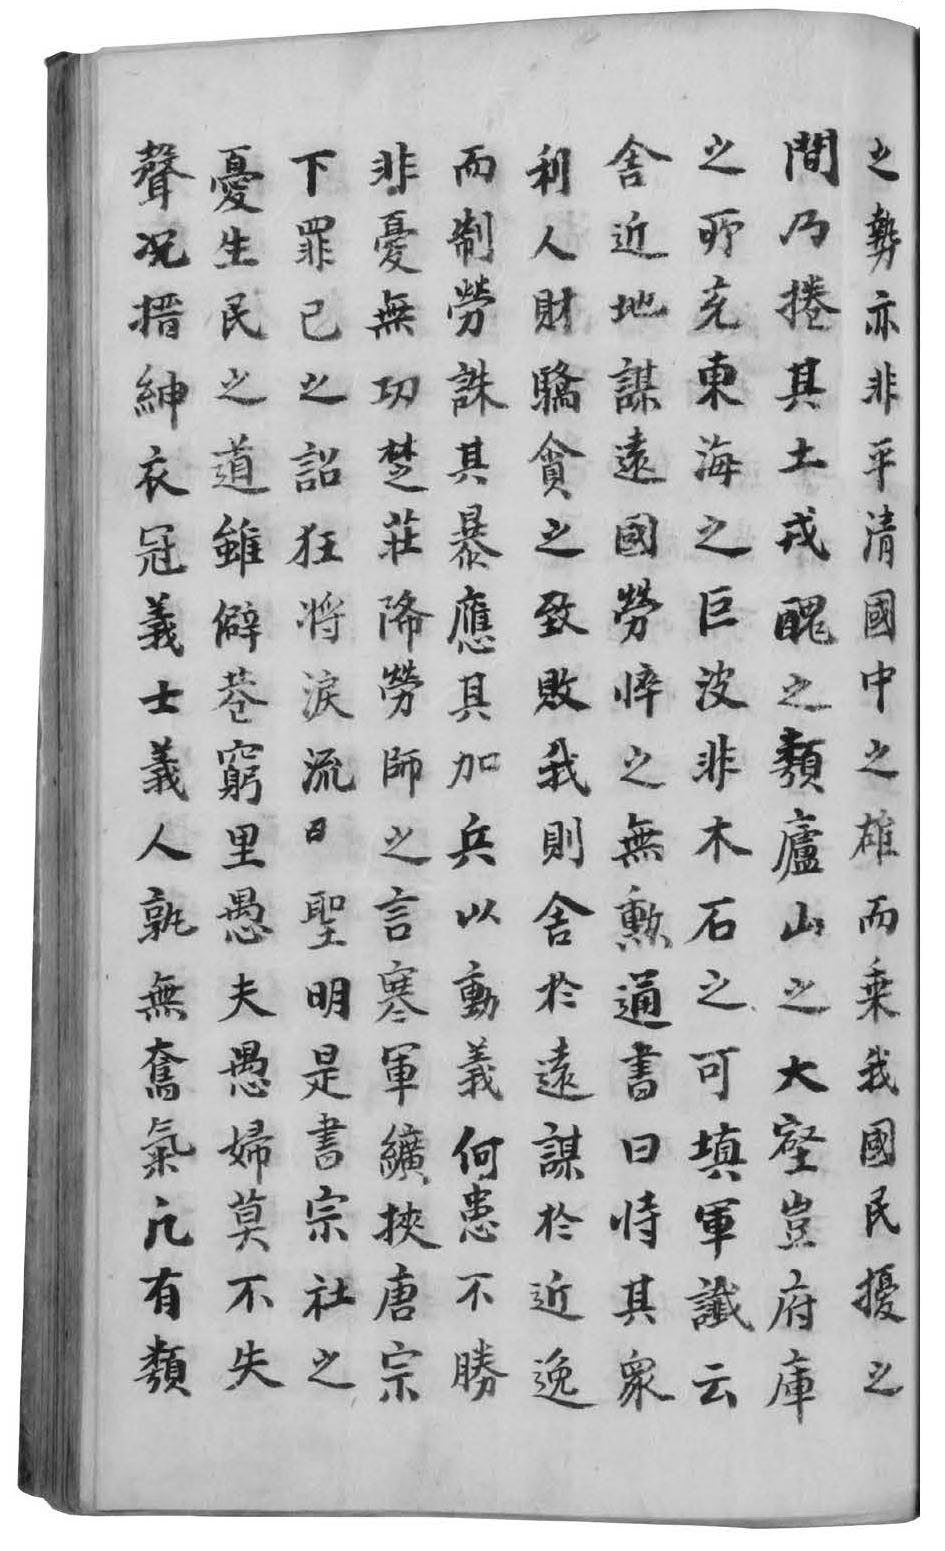 之勢亦非平清國中之雄而乗我國民擾之
間乃捲其土戎醜之類廬山之大壑豈府庫
之所充東海之巨波非木石之可填軍讖云
舍近地謀遠國勞悴之無勲通書曰恃其衆
利人財驕貪之致敗我則舍於遠謀於近逸
而制勞誅其暴應其加兵以動義何患不勝
非憂無功楚莊降勞師之言寒軍纊挾唐宗
下罪已之詔狂将淚流曰聖明是書宗社之
憂生民之道雖僻巷窮里愚夫愚婦莫不失
聲况搢紳衣冠義士義人孰無奮氣凢有類